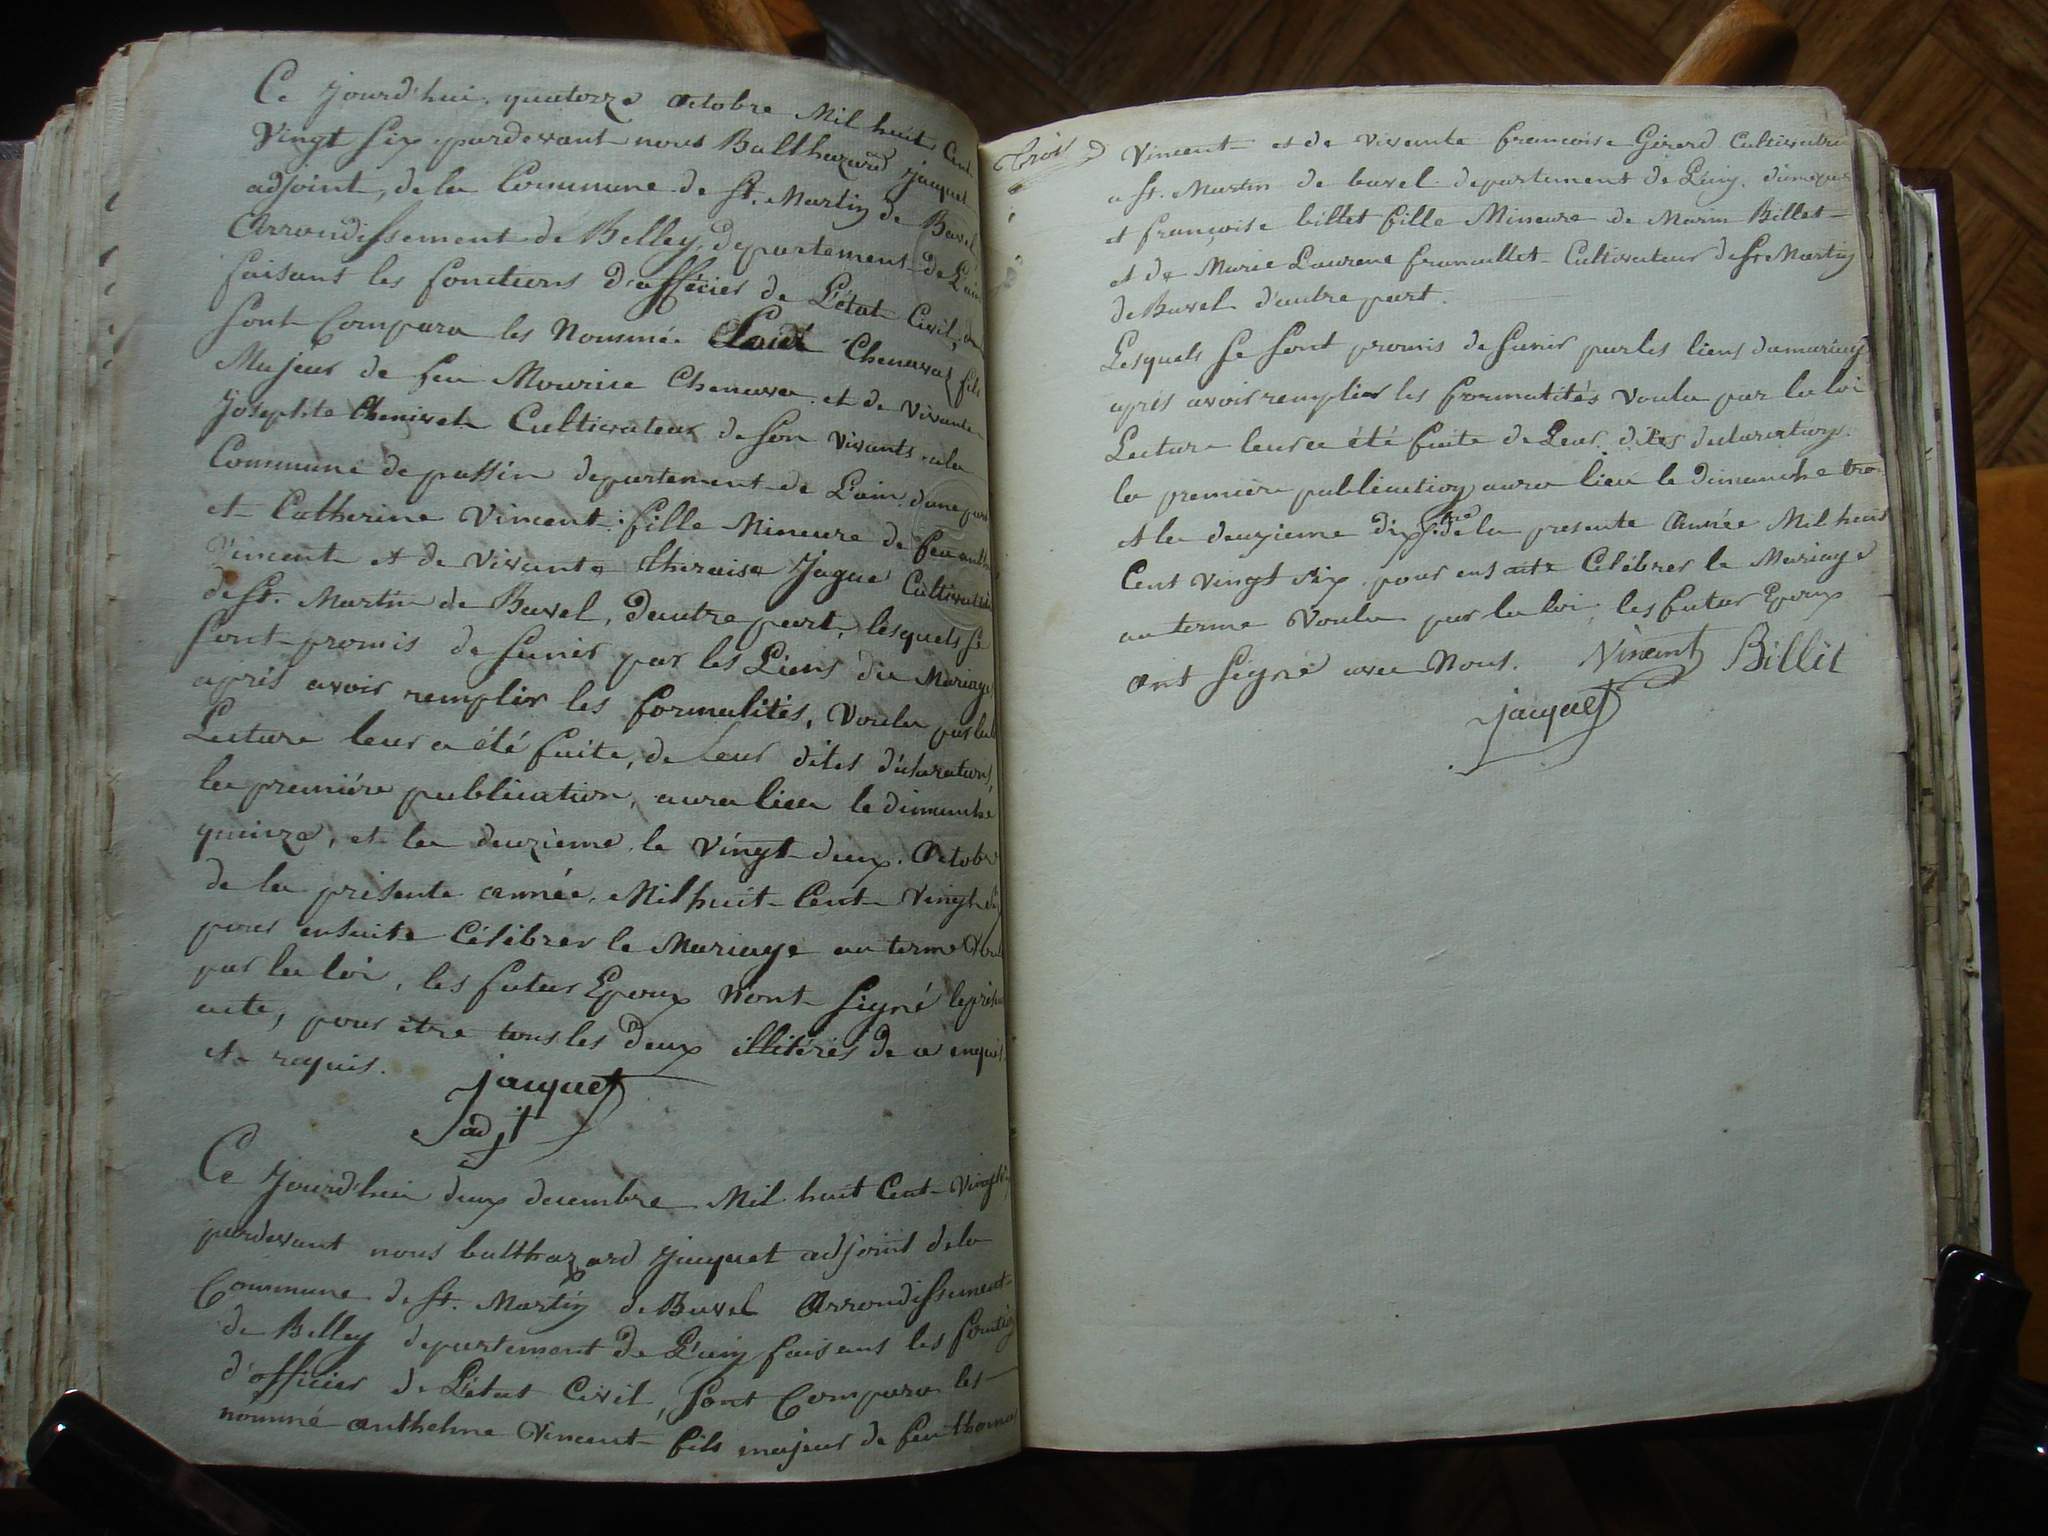 Ce jourd'hui, quatorze octobre Mil huit Cent
Vingt six pardevant nous Balthazard jaquet
adjoint, de la Commune de St. Martin de Bavel
Arrondissement de Belley, departement de L'ain
faisant les fonctions d'officier de L'état Civil,
sont Comparu les Nommée Claude Chenaval fils
Majeur de feu Maurice Chenava et de vivante
josephte Chenivet Cultivateur de son vivants a la
Commune de passin departement de L'ain d'une part
et Catherine Vincent fille Mineure de feu
Vincent et de vivante theraise Jague Cultivateur
de St. Martin de Bavel, d'autre part, lesquels se
sont promis de sunir par les Liens du Mariage
aprés avoir remplir les formalités, voulu par la
Lecture leur a été faite, de Leur dites déclarations,
la première publication, aura lieu le dimanche
quinze, et la deuzième le vingt deux Octobre
de la présente année, Mil huit Cent Vingt six
pour ensuite Célébrer le Mariage au terme voulu
par la loi, les futur Epoux n'ont signé le présent
acte, pour être tous les deux illitérés de ce enquis
et requis.
jaquet
adjt
Ce jourd'hui deux decembre Mil huit Cent Vingt six
pardevant nous balthazard jaquet adjoint de la
Commune de St. Martin de Bavel Arrondissement
de Belley departement de L'ain faisans les fonction
d'officier de L'état Civil, sont Comparu les
nommé anthelme Vincent fils majeur de feu thomas
Vincent et de vivante francoise Girerd Cultivateur
a St. Martin de bavel departement de L'ain, d'une part
et françoise billet fille Mineure de Marin Billet
et de Marie Laurene framaillet Cultivateur de St. Martin
de Bavel d'autre part.
Lesquels se sont promis de sunir par les liens du mariage
aprés avoir remplier les formalités voulu par la loi
Lecture leur a été faite de Leur dites declarations.
la premiere publication aura lieu le dimanche trois
et la deuzieme dix de la presente Année Mil huit
Cent vingt six pour ensuite Celébrer le Mariage
au terme voulu par la loi, les futur Epoux
ont signé avec Nous. Vincent Billet
jaquet